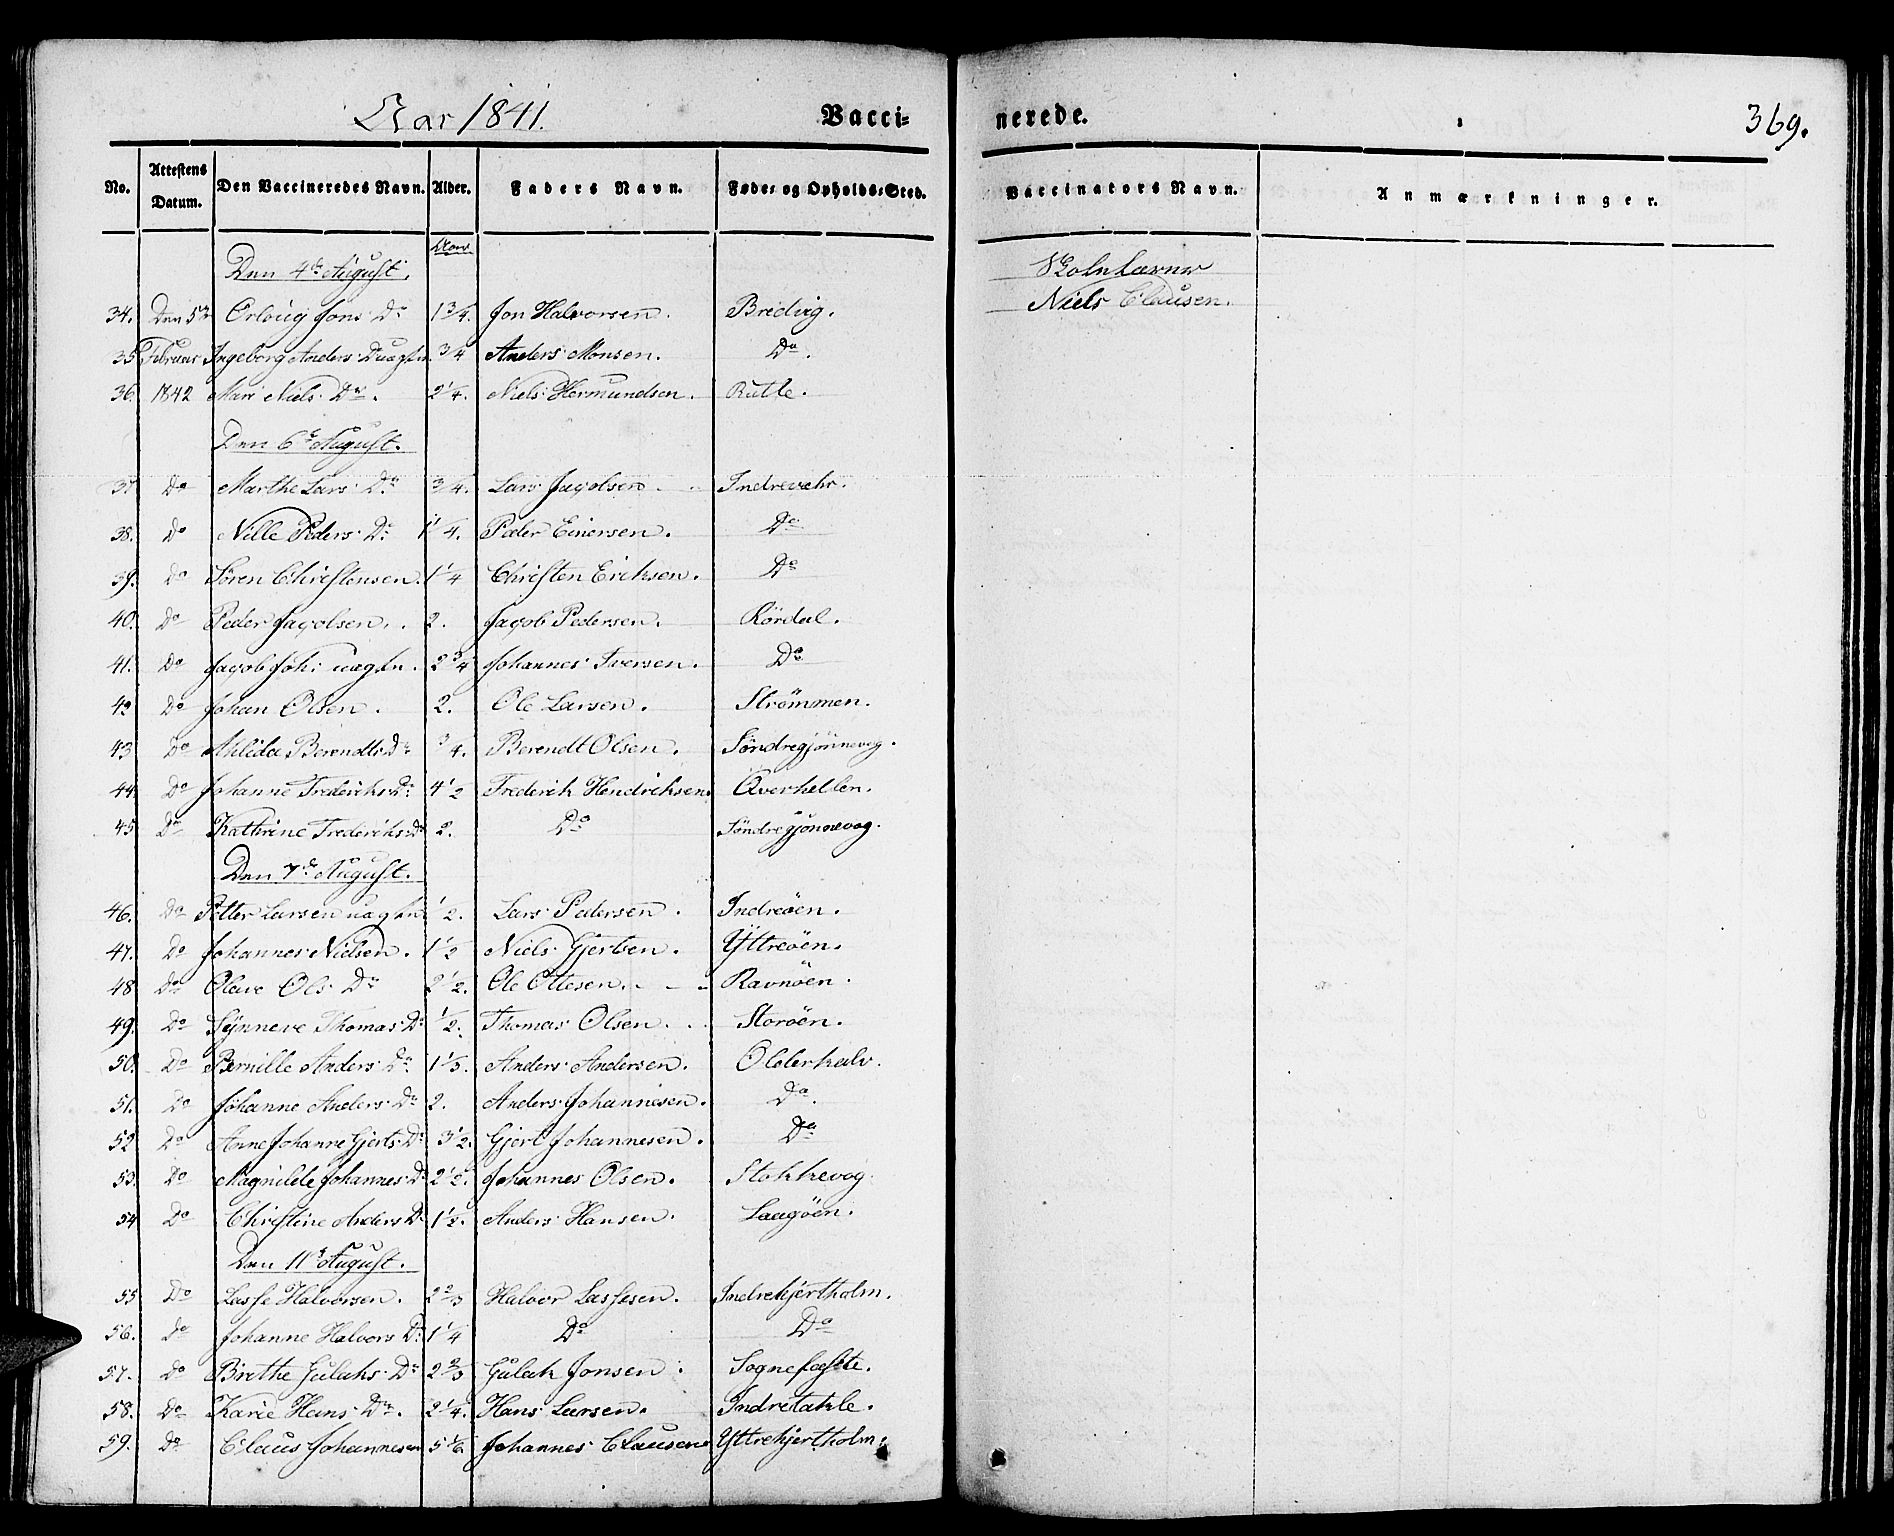 Aar 1841. Vacci= nerede. 369.
No. Attestens Datum. Den Vaccineredes Navn. Alder. Faders Navn. Føde= og Opholds=Sted. Vaccinators Navn. Anmærkninger.
Den 4de August. Skolelærer
34. Den 5te Orloug Jons Dr 1 3/4. Jon Halvorsen. Bredvig. Niels Clausen.
35 Februar Ingeborg Anders 3/4 Anders Monsen. Do.
36. 1842 Mari Niels Dr. 2 1/4. Niels Hermundsen. Rutle.
Den 6te August.
37 Do Marthe Lars Dr 3/4. Lars Jagobsen. Indrevehr.
38. Do Nille Peders Dr 1 1/4. Peder Einersen. Do
39. Do Søren Christensen. 1 1/4 Christen Eriksen. Do
40. Do Peder Jagobsen. 2. Jagob Pedersen. Rördal.
41. Do Jagob Joh: uægte. 2 3/4 Johannes Iversen. Do
42 Do Johan Olsen. 2. Ole Larsen. Strömmen.
43 Do Ahlida Berendts Dr 3/4. Berendt Olsen. Söndregjönnevog.
44. Do Johanne Frederiks Dr 4 1/2 Frederik Hendriksen. Överhellen.
45 Do Kathrine Frederiks Dr 2. Do Söndregjönnevog.
Den 7de August.
46. Do Petter Larsen uægte 1/2. Lars Pedersen. Indreöen.
47. Do Johannes Nielsen. 1 1/2 Niels Gjertsen. Yttreöen.
48 Do Olave Ols Dr 2 1/2. Ole Ottesen. Ravnöen.
49. Do Synneve Thomas Dr 1/2. Thomas Olsen. Storöen.
50. Do Pernille Anders Dr 1 1/3. Anders Andersen. Olderkalv.
51. Do Johanne Anders Dr 2. Anders Johannesen. Do.
52 Do Anne Johanne Gjerts Dr 3 1/2. Gjert Johannesen. Do
53. Do Magnilde Johannes Dr 2 1/2. Johannes Olsen. Stokkevog
54 Do Christine Anders Dr 1 1/2. Anders Hansen. Laagöen.
Den 11te August.
55 Do Lasse Halvorsen. 2 2/3 Halvor Lassesen. Indrehjertholm.
56. Do Johanne Halvors Dr 1 1/4 Do Do
57. Do Birthe Gulaks Dr 2 2/3 Gulak Jonsen. Sognefæste.
58. Do Karie Hans Dr. 2 1/4. Hans Larsen. Indretakle.
59. Do Claus Johannesen 5 1/6 Johannes Clausen. Yttrehjertholm.